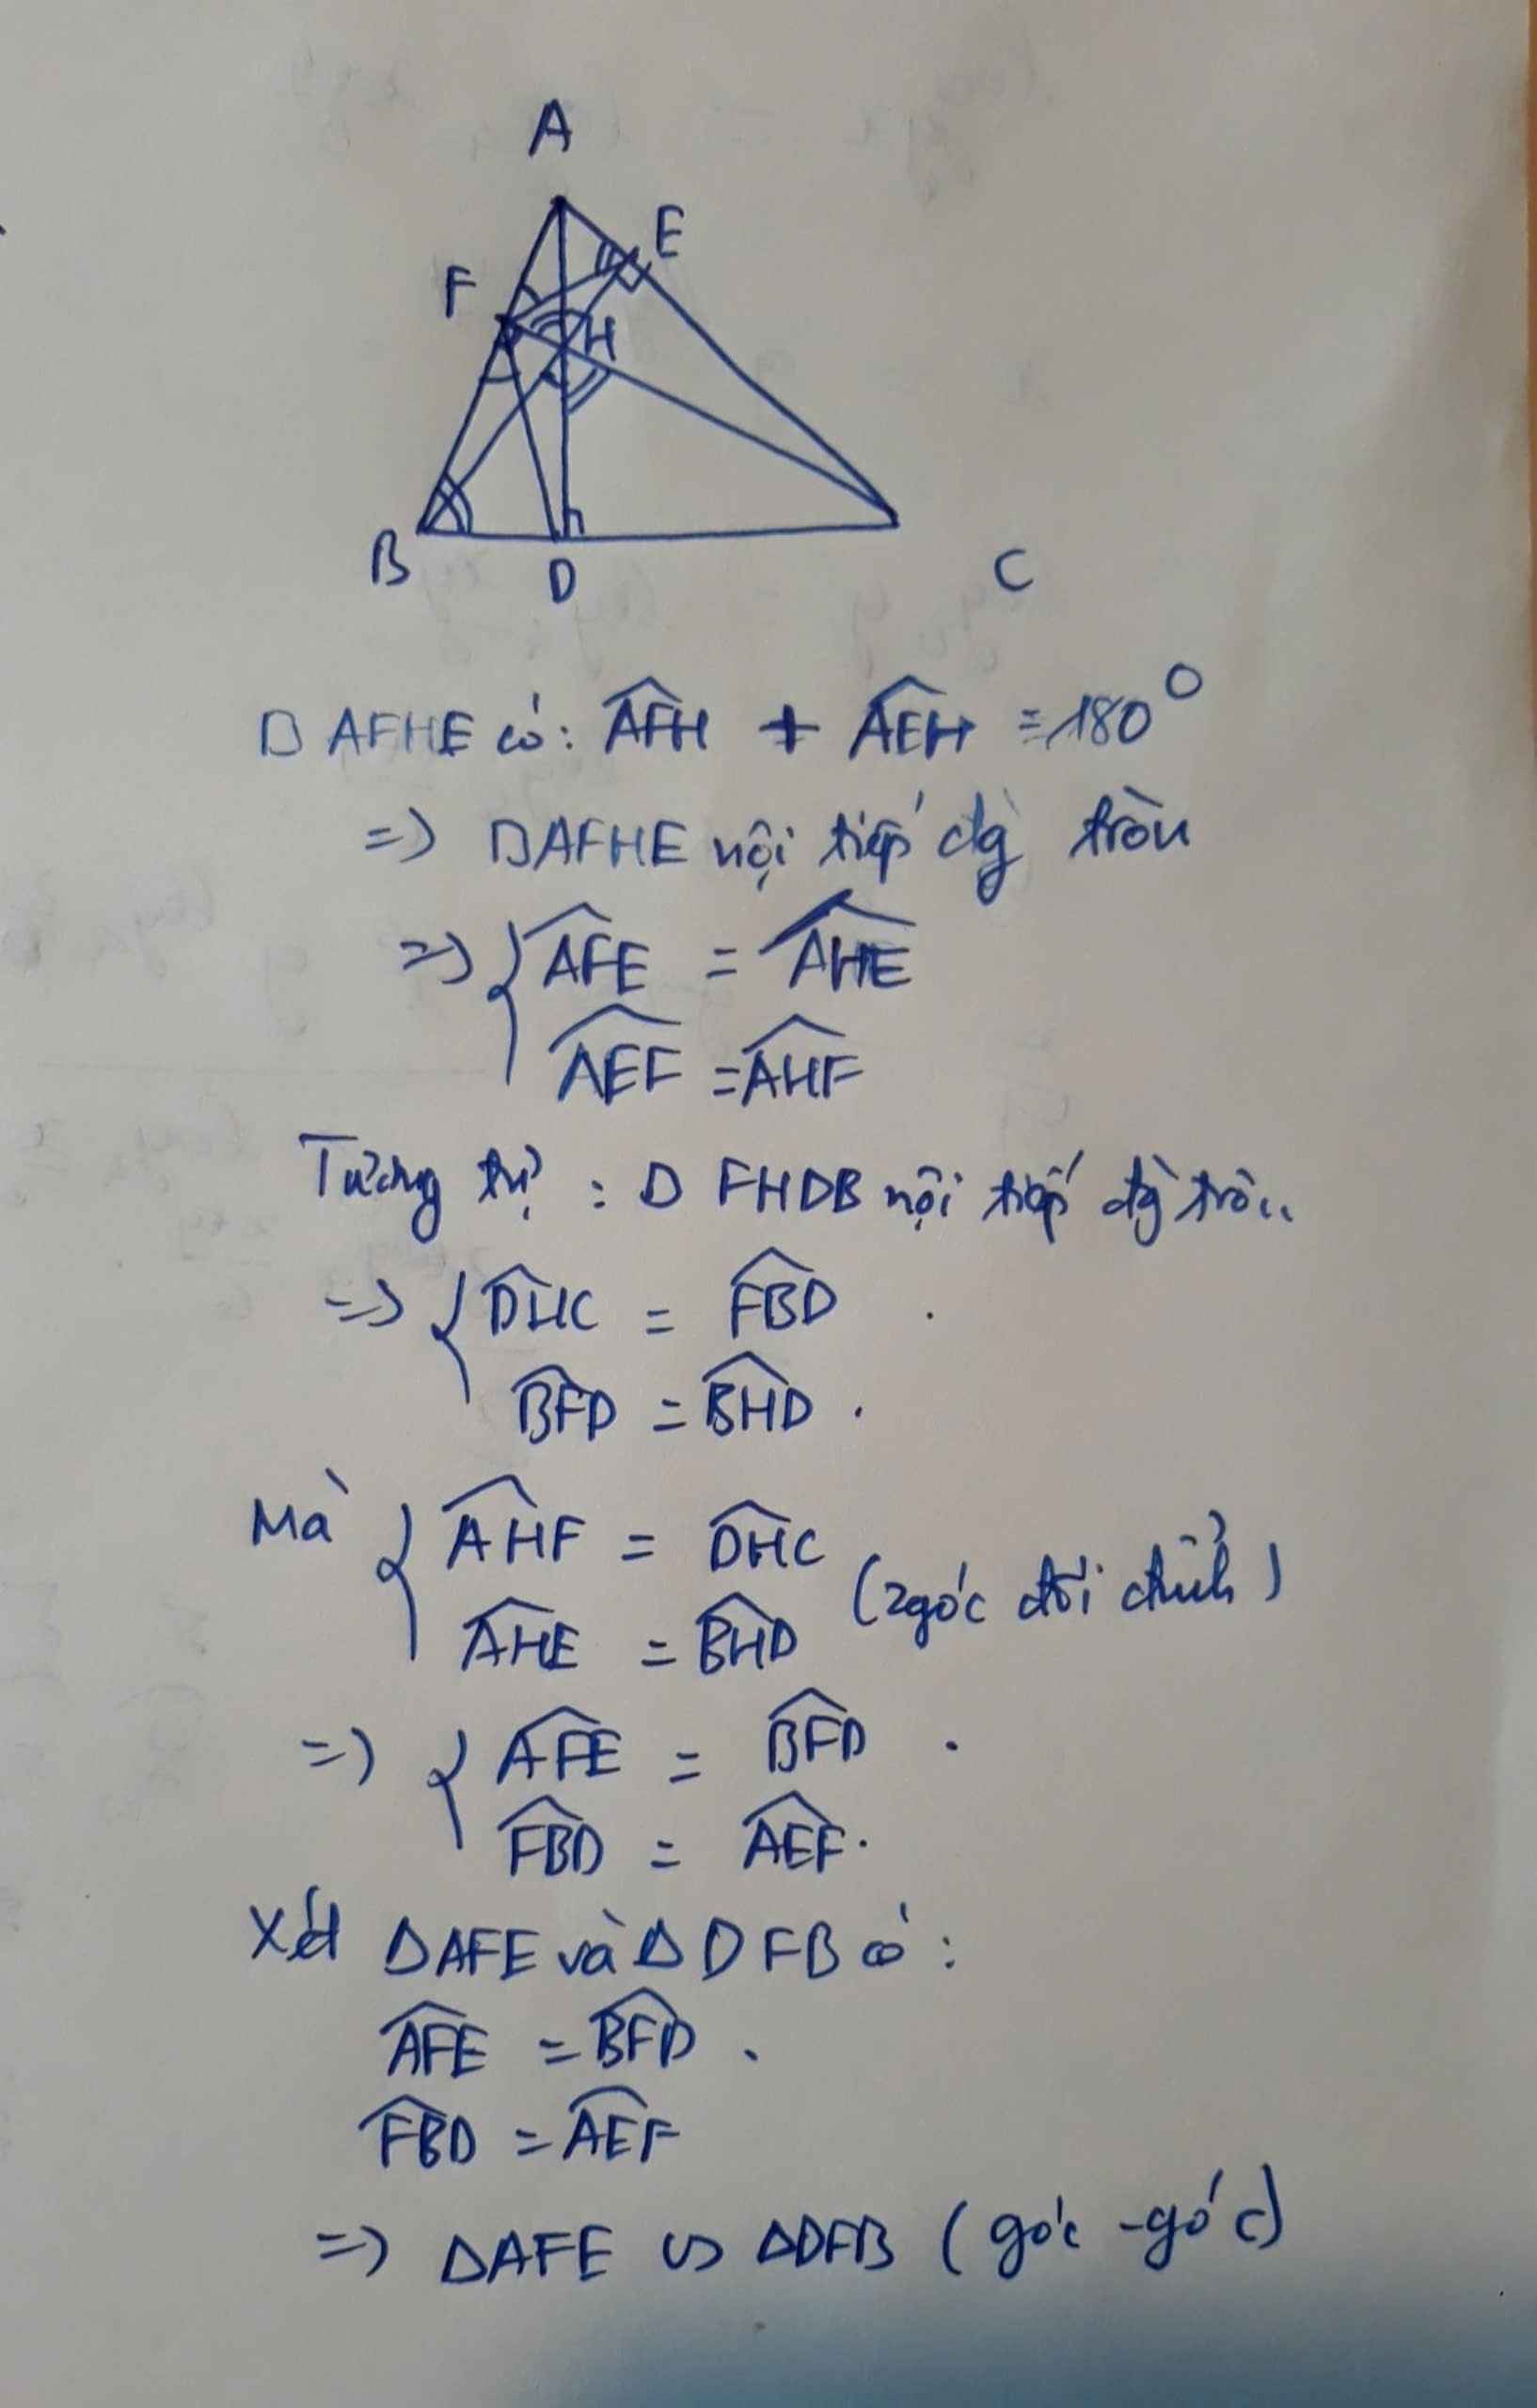 A
E
F
H
B
D
C
□ AFHE có: \widehat{AFH} + \widehat{AEH} = 180°
=> □AFHE nội tiếp đg tròn
=> { \widehat{AFE} = \widehat{AHE}
\widehat{AEF} = \widehat{AHF}
Tương tự : □ FHDB nội tiếp đg tròn
=> { \widehat{DHC} = \widehat{FBD} .
\widehat{BFD} = \widehat{BHD} .
Mà { \widehat{AHF} = \widehat{DHC}
(2góc đối đỉnh)
\widehat{AHE} = \widehat{BHD}
=> { \widehat{AFE} = \widehat{BFD} .
\widehat{FBD} = \widehat{AEF} .
Xét ΔAFE và Δ DFB có :
\widehat{AFE} = \widehat{BFD} .
\widehat{FBD} = \widehat{AEF}
=> ΔAFE ∽ ΔDFB (góc - góc)